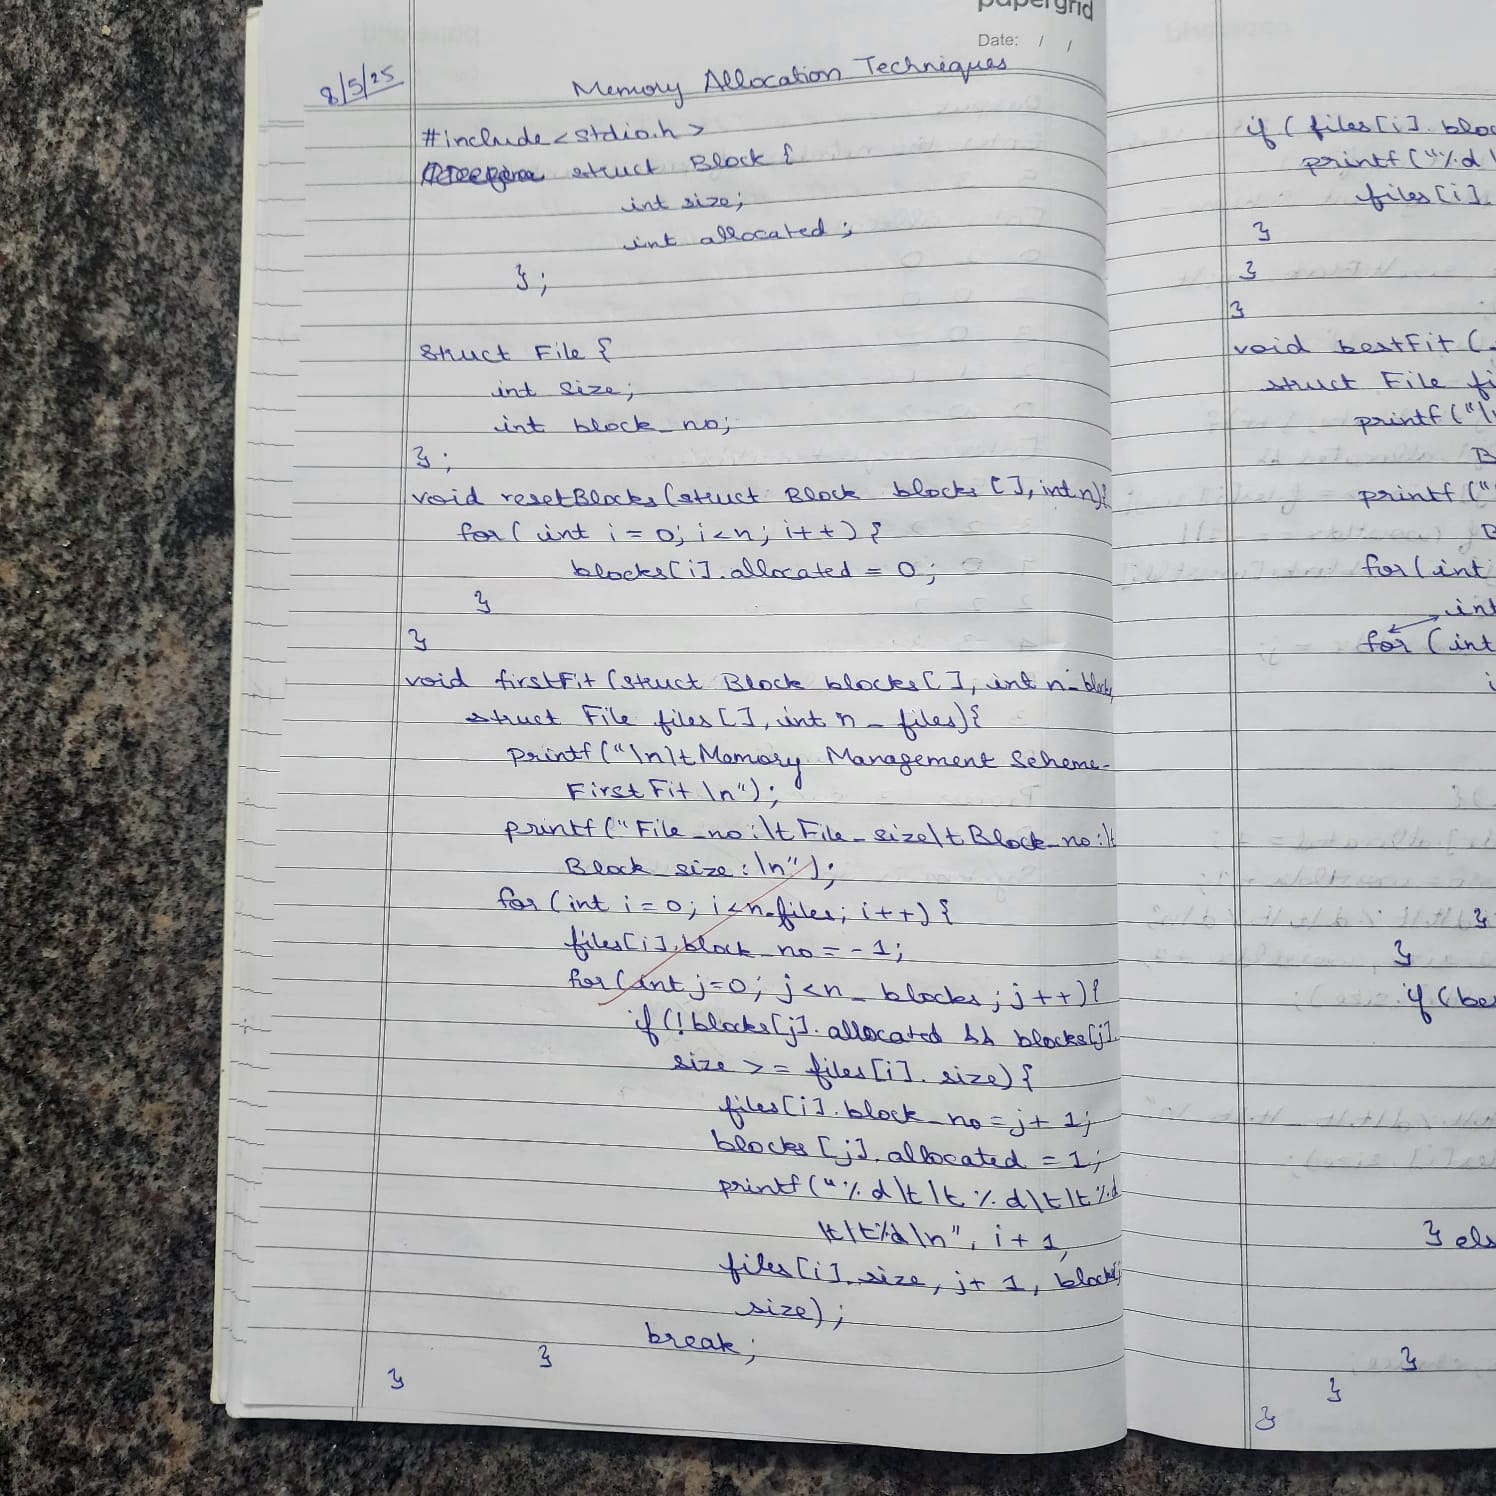 papergrid
Date: / /
8/5/25
Memory Allocation Techniques
#include<stdio.h>
struct Block {
int size;
int allocated;
};
struct File {
int size;
int block_no;
};
void resetBlocks(struct Block blocks[], int n){
for(int i=0; i<n; i++){
blocks[i].allocated = 0;
}
}
void firstFit(struct Block blocks[], int n_blocks,
struct File files[], int n_files){
printf("\n\t Memory Management Scheme-
First Fit \n");
printf("File_no:\t File_size\t Block_no:\t
Block_size:\n");
for(int i=0; i<n_files; i++){
files[i].block_no = -1;
for(int j=0; j<n_blocks; j++){
if(!blocks[j].allocated && blocks[j].
size >= files[i].size){
files[i].block_no = j+1;
blocks[j].allocated = 1;
printf("%d\t\t%d\t\t%d
\t\t%d\n", i+1,
files[i].size, j+1, blocks[j]
size);
break;
}
}
if(files[i].bloc
printf("%d\
files[i].
}
}
}
void bestFit(
struct File fi
printf("\
B
printf("
B
for(int
int
for(int
i
}
}
if(be
} els
}
}
}